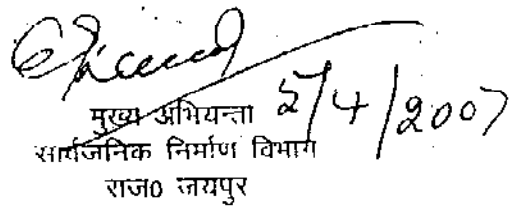 मुख्य अभियन्ता 5/4/2007
सार्वजनिक निर्माण विभाग
राज0 जयपुर